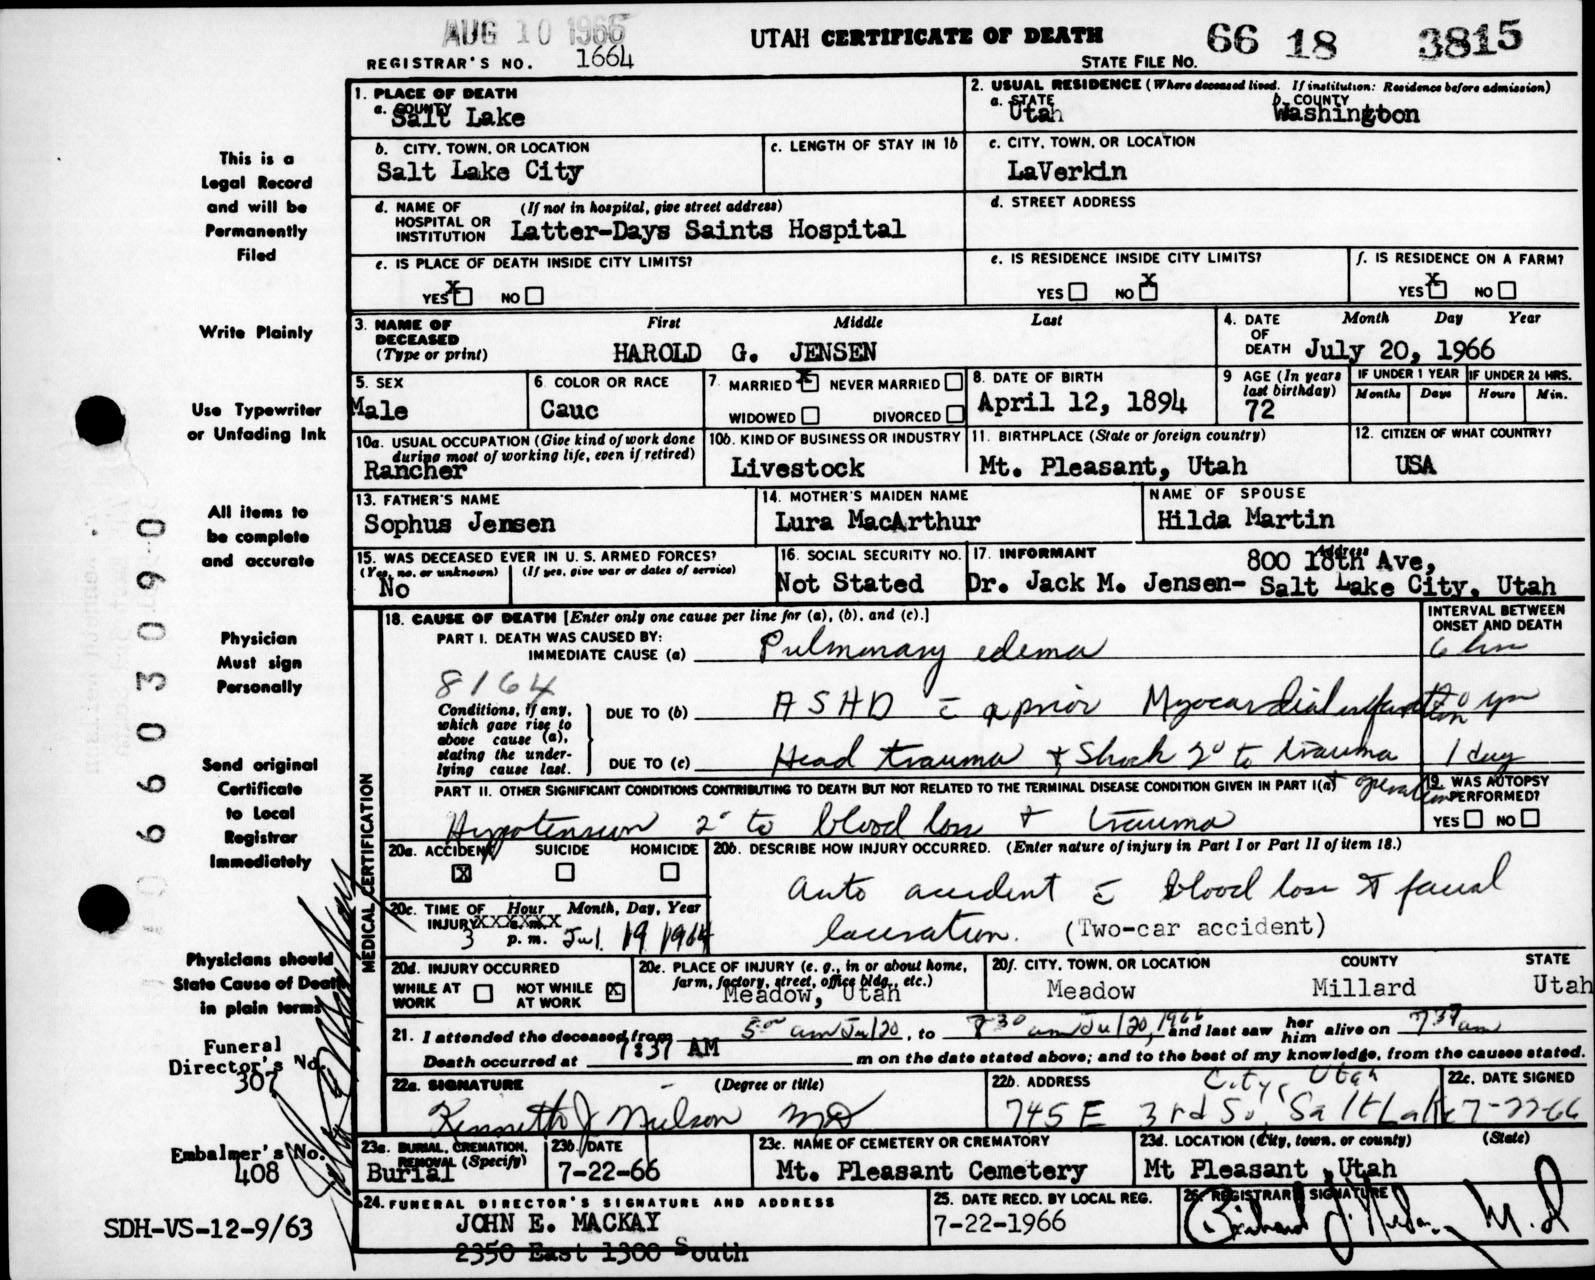 AUG 10 1966
UTAH CERTIFICATE OF DEATH
66 18 3815
REGISTRAR'S NO. 1664
STATE FILE NO.
This is a
Legal Record
and will be
Permanently
Filed
Write Plainly
Use Typewriter
or Unfading Ink
All items to
be complete
and accurate
Physician
Must sign
Personally
Send original
Certificate
to Local
Registrar
Immediately
Physicians should
State Cause of Death
in plain terms
Funeral
Director's No.
307
Embalmer's No.
408
SDH-VS-12-9/63
1. PLACE OF DEATH
a. COUNTY
Salt Lake
2. USUAL RESIDENCE (Where deceased lived. If institution: Residence before admission)
a. STATE b. COUNTY
Utah Washington
b. CITY, TOWN, OR LOCATION
Salt Lake City
c. LENGTH OF STAY IN 1b
c. CITY, TOWN, OR LOCATION
LaVerkin
d. NAME OF (If not in hospital, give street address)
HOSPITAL OR
INSTITUTION Latter-Days Saints Hospital
d. STREET ADDRESS
e. IS PLACE OF DEATH INSIDE CITY LIMITS?
YES X NO
e. IS RESIDENCE INSIDE CITY LIMITS?
YES NO X
f. IS RESIDENCE ON A FARM?
YES X NO
3. NAME OF
DECEASED
(Type or print)
First Middle Last
HAROLD G. JENSEN
4. DATE
OF
DEATH
Month Day Year
July 20, 1966
5. SEX
Male
6 COLOR OR RACE
Cauc
7 MARRIED X NEVER MARRIED
WIDOWED DIVORCED
8. DATE OF BIRTH
April 12, 1894
9 AGE (In years
last birthday)
72
IF UNDER 1 YEAR
Months Days
IF UNDER 24 HRS.
Hours Min.
10a. USUAL OCCUPATION (Give kind of work done
during most of working life, even if retired)
Rancher
10b. KIND OF BUSINESS OR INDUSTRY
Livestock
11. BIRTHPLACE (State or foreign country)
Mt. Pleasant, Utah
12. CITIZEN OF WHAT COUNTRY?
USA
13. FATHER'S NAME
Sophus Jensen
14. MOTHER'S MAIDEN NAME
Lura MacArthur
NAME OF SPOUSE
Hilda Martin
15. WAS DECEASED EVER IN U. S. ARMED FORCES?
(Yes, no, or unknown) (If yes, give war or dates of service)
No
16. SOCIAL SECURITY NO.
Not Stated
17. INFORMANT Address
800 18th Ave,
Dr. Jack M. Jensen- Salt Lake City, Utah
0660309 0
MEDICAL CERTIFICATION
18. CAUSE OF DEATH [Enter only one cause per line for (a), (b), and (c).]
INTERVAL BETWEEN
ONSET AND DEATH
PART I. DEATH WAS CAUSED BY:
IMMEDIATE CAUSE (a) Pulmonary edema 6 hrs
8164
Conditions, if any,
which gave rise to
above cause (a),
stating the under-
lying cause last.
DUE TO (b) ASHD c̄ a prior Myocardial infarction
DUE TO (c) Head trauma & Shock 2° to trauma 1 day
PART II. OTHER SIGNIFICANT CONDITIONS CONTRIBUTING TO DEATH BUT NOT RELATED TO THE TERMINAL DISEASE CONDITION GIVEN IN PART I(a)
Hypotension 2° to blood loss & trauma
19. WAS AUTOPSY
PERFORMED?
YES NO
20a. ACCIDENT SUICIDE HOMICIDE
X
20b. DESCRIBE HOW INJURY OCCURRED. (Enter nature of injury in Part I or Part II of item 18.)
Auto accident c̄ blood loss & facial
laceration. (Two-car accident)
20c. TIME OF Hour Month, Day, Year
INJURY XXXXXXX
3 p. m. Jul 19 1964
20d. INJURY OCCURRED
WHILE AT NOT WHILE X
WORK AT WORK
20e. PLACE OF INJURY (e. g., in or about home,
farm, factory, street, office bldg., etc.)
Meadow, Utah
20f. CITY, TOWN, OR LOCATION COUNTY STATE
Meadow Millard Utah
21. I attended the deceased from 5:00 am Jul 20, to 7 30 am Jul 20, 1966 and last saw her him alive on 7 37 am
Death occurred at 7:37 AM m on the date stated above; and to the best of my knowledge, from the causes stated.
22a. SIGNATURE (Degree or title)
Kenneth J Nielson MD
22b. ADDRESS
City, Utah
745 E 3rd So, Salt Lake
22c. DATE SIGNED
7-22-66
23a. BURIAL, CREMATION,
REMOVAL (Specify)
Burial
23b. DATE
7-22-66
23c. NAME OF CEMETERY OR CREMATORY
Mt. Pleasant Cemetery
23d. LOCATION (City, town, or county) (State)
Mt Pleasant, Utah
24. FUNERAL DIRECTOR'S SIGNATURE AND ADDRESS
JOHN E. MACKAY
2350 East 1300 South
25. DATE RECD. BY LOCAL REG.
7-22-1966
26. REGISTRAR'S SIGNATURE
M.D